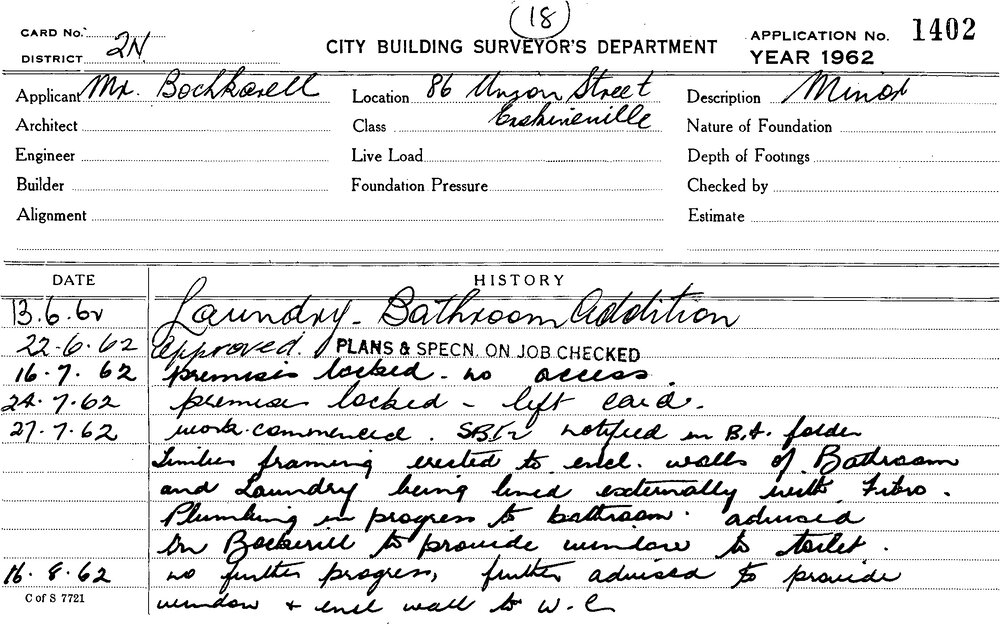 (18)
CARD No.
DISTRICT 2N
CITY BUILDING SURVEYOR'S DEPARTMENT
APPLICATION No. 1402
YEAR 1962
Applicant Mr. Bockkerell Location 86 Union Street Description Minor
Erskineville
Architect Class Nature of Foundation
Engineer Live Load Depth of Footings
Builder Foundation Pressure Checked by
Alignment Estimate
DATE HISTORY
13.6.62 Laundry - Bathroom Addition
22.6.62 Approved. PLANS & SPECN. ON JOB CHECKED
16.7.62 premises locked - no access.
24.7.62 premises locked - left card.
27.7.62 work commenced. notified in folder
Timber framing erected to encl. walls of Bathroom
and Laundry being lined externally with Fibro.
Plumbing in progress to bathroom. advised
Mr Bockerill to provide window to toilet.
16.8.62 no further progress, further advised to provide
window + encl wall to W.C
C of S 7721